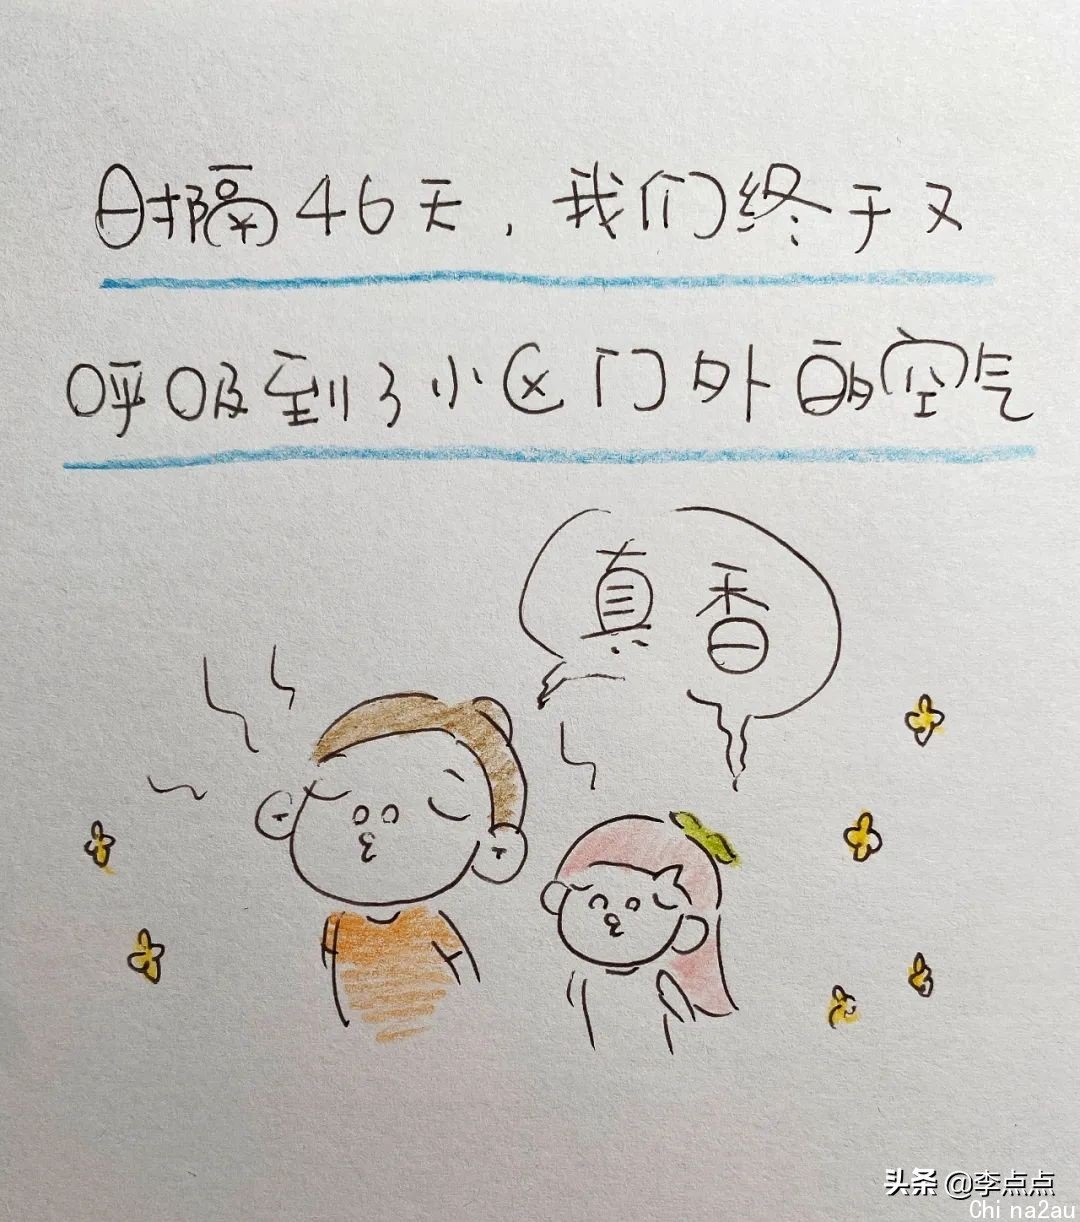 时隔46天，我们终于又
呼吸到了小区门外的空气
真香
头条 @李点点
Chi na2au